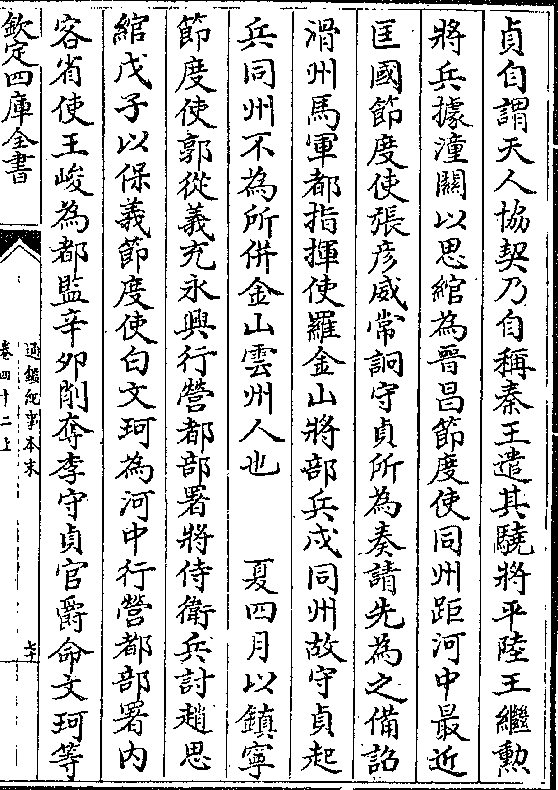 貞自謂天人協契乃自稱秦王遣其驍將平陸王繼勲
將兵據潼關以思綰為晉昌節度使同州距河中最近
匡國節度使張彦威常詗守貞所為奏請先為之備詔
滑州馬軍都指揮使羅金山將部兵戍同州故守貞起
兵同州不為所併金山雲州人也　夏四月以鎮寧
節度使郭從義充永興行營都部署將侍衛兵討趙思
綰戊子以保義節度使白文珂為河中行營都部署内
客省使王峻為都監辛夘削奪李守貞官爵命文珂等
欽定四庫全書
通鑑紀事本末
卷四十二上